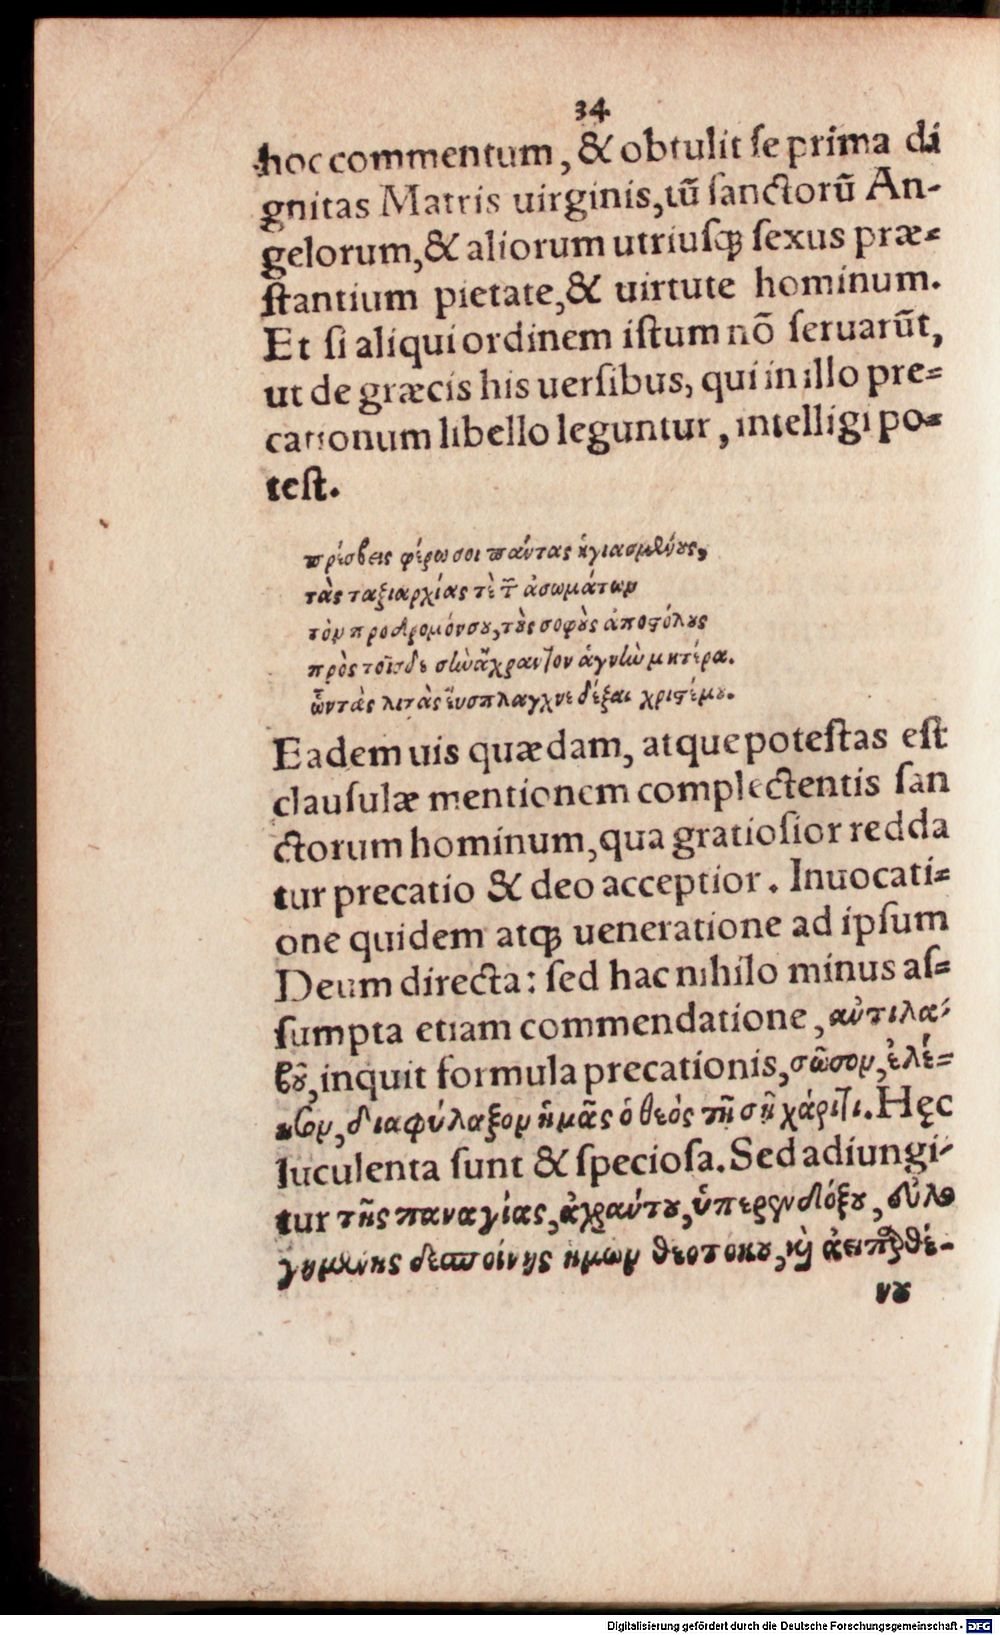 34
hoc commentum, & obtulit se prima di
gnitas Matris uirginis, tũ sanctorũ An-
gelorum, & aliorum utriusqꝫ sexus præ=
stantium pietate, & uirtute hominum.
Et si aliqui ordinem istum nõ seruarũt,
ut de græcis his uersibus, qui in illo pre=
cationum libello leguntur, intelligi po=
test.
πρέσβεις φέρω σοι πάντας ἡγιασμένους,
τὰς ταξιαρχίας τὲ τῶν ἀσωμάτων
τὸν πρόδρομόν σου, τοὺς σοφοὺς ἀποστόλους
πρὸς τοῖσδε σὴν ἄχραντον ἁγνὴν μητέρα.
ὧν τὰς λιτὰς εὔσπλαγχνε δέξαι χριστέ μου.
Eadem uis quædam, atque potestas est
clausulæ mentionem complectentis san
ctorum hominum, qua gratiosior redda
tur precatio & deo acceptior. Inuocati=
one quidem atqꝫ ueneratione ad ipsum
Deum directa: sed hac nihilo minus as=
sumpta etiam commendatione, αὐτιλα-
βοῦ, inquit formula precationis, σῶσον, ἐλέ=
ησον, διαφύλαξον ἡμᾶς ὁ θεὸς τῇ σῇ χάριτι. Hęc
luculenta sunt & speciosa. Sed adiungi-
tur τῆς παναγίας, ἀχράντου, ὑπερενδόξου, εὐλο
γημένης δεσποίνης ἡμων θεοτόκου, καὶ ἀειπαρθέ-
νου
Digitalisierung gefördert durch die Deutsche Forschungsgemeinschaft - DFG